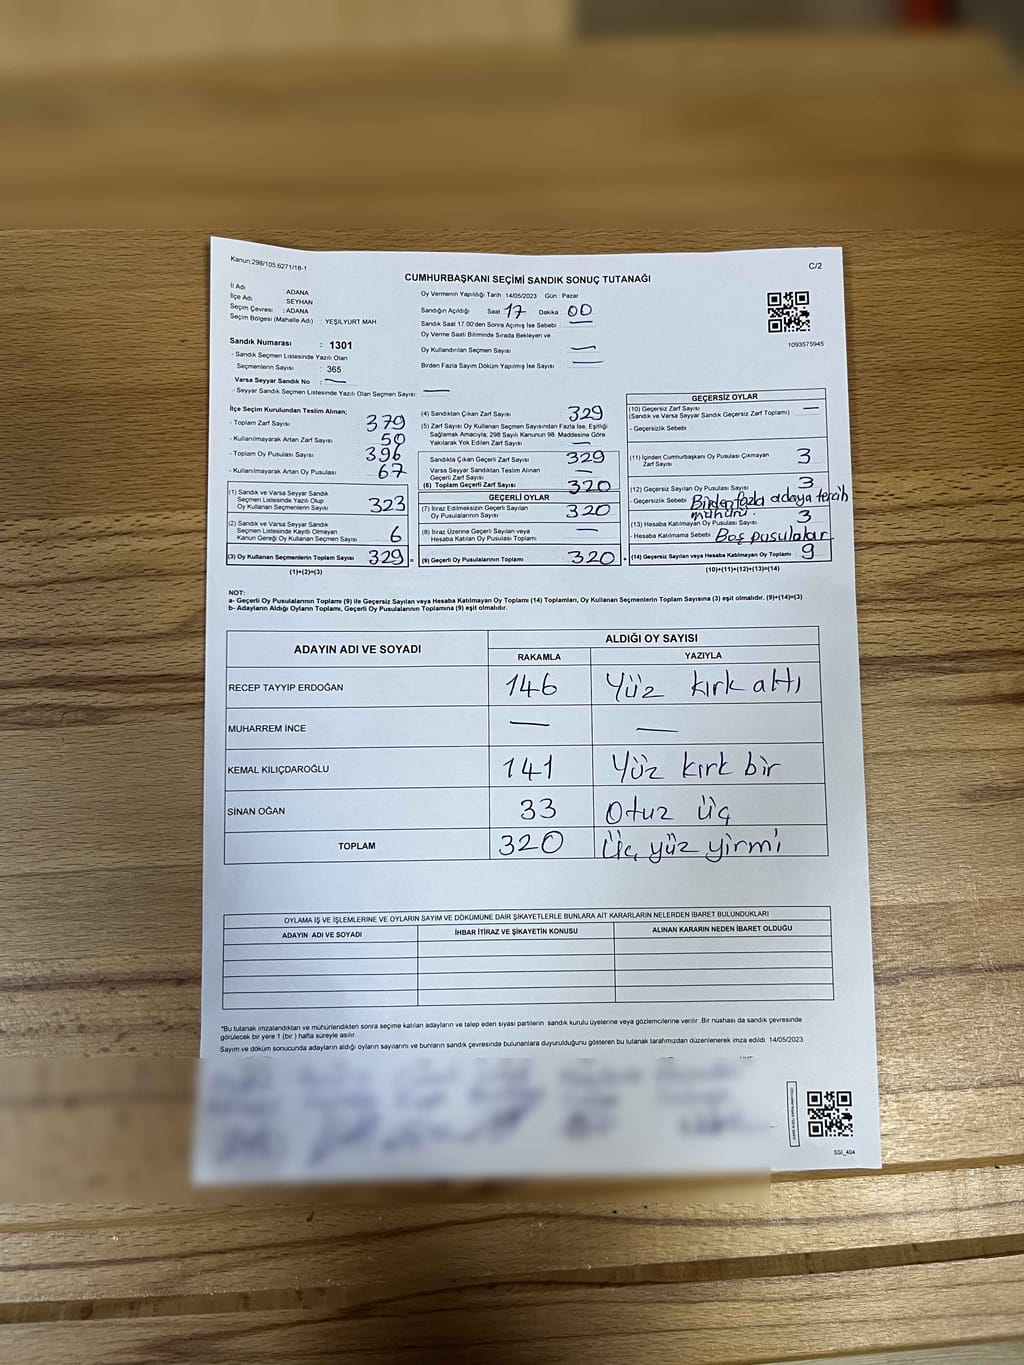 Kanun:298/105;6271/18-1
C/2
CUMHURBAŞKANI SEÇİMİ SANDIK SONUÇ TUTANAĞI
İl Adı : ADANA
İlçe Adı : SEYHAN
Seçim Çevresi : ADANA
Seçim Bölgesi (Mahalle Adı) : YEŞİLYURT MAH.
Sandık Numarası : 1301
- Sandık Seçmen Listesinde Yazılı Olan
Seçmenlerin Sayısı : 365
Varsa Seyyar Sandık No : —
- Seyyar Sandık Seçmen Listesinde Yazılı Olan Seçmen Sayısı : —
Oy Vermenin Yapıldığı Tarih : 14/05/2023 Gün : Pazar
Sandığın Açıldığı Saat 17 Dakika 00
Sandık Saat 17.00'den Sonra Açılmış İse Sebebi : —
Oy Verme Saati Bitiminde Sırada Bekleyen ve
Oy Kullandırılan Seçmen Sayısı : —
Birden Fazla Sayım Döküm Yapılmış İse Sayısı : —
1093575945
İlçe Seçim Kurulundan Teslim Alınan;
- Toplam Zarf Sayısı : 379
- Kullanılmayarak Artan Zarf Sayısı : 50
- Toplam Oy Pusulası Sayısı : 396
- Kullanılmayarak Artan Oy Pusulası : 67
(1) Sandık ve Varsa Seyyar Sandık
Seçmen Listesinde Yazılı Olup
Oy Kullanan Seçmenlerin Sayısı 323
(2) Sandık ve Varsa Seyyar Sandık
Seçmen Listesinde Kayıtlı Olmayan
Kanun Gereği Oy Kullanan Seçmen Sayısı 6
(3) Oy Kullanan Seçmenlerin Toplam Sayısı 329 =
(1)+(2)=(3)
(4) Sandıktan Çıkan Zarf Sayısı 329
(5) Zarf Sayısı Oy Kullanan Seçmen Sayısından Fazla İse, Eşitliği
Sağlamak Amacıyla; 298 Sayılı Kanunun 98. Maddesine Göre
Yakılarak Yok Edilen Zarf Sayısı —
Sandıkta Çıkan Geçerli Zarf Sayısı 329
Varsa Seyyar Sandıktan Teslim Alınan
Geçerli Zarf Sayısı —
(6) Toplam Geçerli Zarf Sayısı 320
GEÇERLİ OYLAR
(7) İtiraz Edilmeksizin Geçerli Sayılan
Oy Pusulalarının Sayısı 320
(8) İtiraz Üzerine Geçerli Sayılan veya
Hesaba Katılan Oy Pusulası Toplamı —
(9) Geçerli Oy Pusulalarının Toplamı 320 +
GEÇERSİZ OYLAR
(10) Geçersiz Zarf Sayısı
(Sandık ve Varsa Seyyar Sandık Geçersiz Zarf Toplamı) —
- Geçersizlik Sebebi :
(11) İçinden Cumhurbaşkanı Oy Pusulası Çıkmayan
Zarf Sayısı 3
(12) Geçersiz Sayılan Oy Pusulası Sayısı 3
- Geçersizlik Sebebi : Birden fazla adaya tercih
mühürü.
(13) Hesaba Katılmayan Oy Pusulası Sayısı 3
- Hesaba Katılmama Sebebi : Boş pusulalar
(14) Geçersiz Sayılan veya Hesaba Katılmayan Oy Toplamı 9
(10)+(11)+(12)+(13)=(14)
NOT:
a- Geçerli Oy Pusulalarının Toplamı (9) ile Geçersiz Sayılan veya Hesaba Katılmayan Oy Toplamı (14) Toplamları, Oy Kullanan Seçmenlerin Toplam Sayısına (3) eşit olmalıdır. (9)+(14)=(3)
b- Adayların Aldığı Oyların Toplamı, Geçerli Oy Pusulalarının Toplamına (9) eşit olmalıdır.
ADAYIN ADI VE SOYADI
ALDIĞI OY SAYISI
RAKAMLA YAZIYLA
RECEP TAYYİP ERDOĞAN 146 Yüz kırk altı
MUHARREM İNCE — —
KEMAL KILIÇDAROĞLU 141 Yüz kırk bir
SİNAN OĞAN 33 Otuz üç
TOPLAM 320 Üç yüz yirmi
OYLAMA İŞ VE İŞLEMLERİNE VE OYLARIN SAYIM VE DÖKÜMÜNE DAİR ŞİKAYETLERLE BUNLARA AİT KARARLARIN NELERDEN İBARET BULUNDUKLARI
ADAYIN ADI VE SOYADI İHBAR İTİRAZ VE ŞİKAYETİN KONUSU ALINAN KARARIN NEDEN İBARET OLDUĞU
*Bu tutanak imzalandıktan ve mühürlendikten sonra seçime katılan adayların ve talep eden siyasi partilerin sandık kurulu üyelerine veya gözlemcilerine verilir .Bir nüshası da sandık çevresinde
görülecek bir yere 1 (bir ) hafta süreyle asılır.
Sayım ve döküm sonucunda adayların aldığı oyların sayılarını ve bunların sandık çevresinde bulunanlara duyurulduğunu gösteren bu tutanak tarafımızdan düzenlenerek imza edildi. 14/05/2023
SSI_404